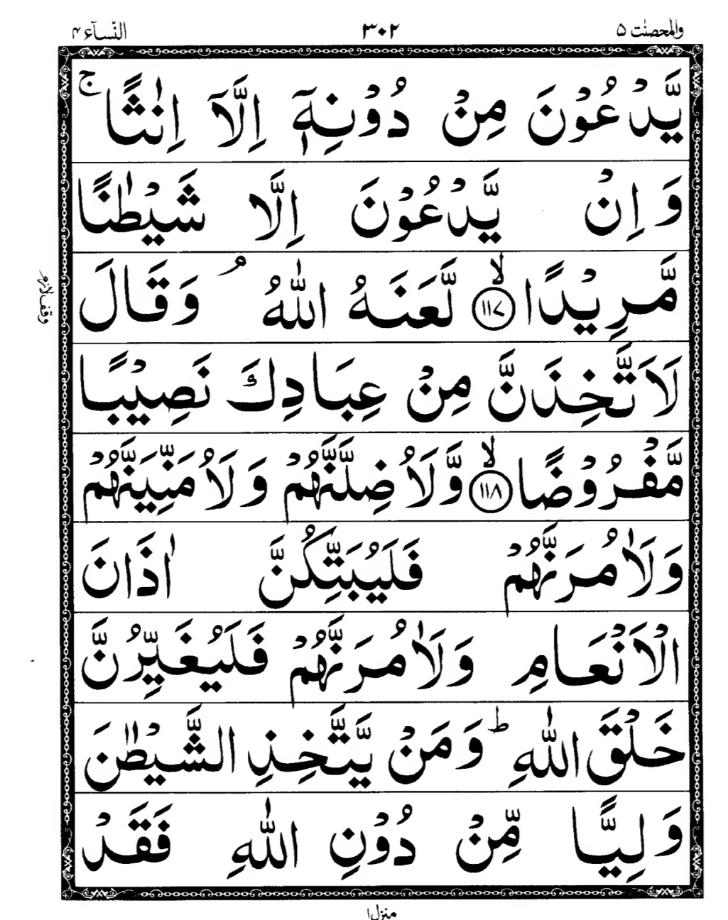 والمحصنٰت ۵ ۳۰۲ النّسآء ۴
يَّدْعُوْنَ مِنْ دُوْنِهٖۤ اِلَّاۤ اِنٰثًا ۚ
وَ اِنْ يَّدْعُوْنَ اِلَّا شَيْطٰنًا
مَّرِيْدًا ۙ﴿۱۱۷﴾ لَّعَنَهُ اللّٰهُ ۘ وَقَالَ
وقف لازم
لَاَتَّخِذَنَّ مِنْ عِبَادِكَ نَصِيْبًا
مَّفْرُوْضًا ۙ﴿۱۱۸﴾ وَّلَاُضِلَّنَّهُمْ وَلَاُمَنِّيَنَّهُمْ
وَلَاٰمُرَنَّهُمْ فَلَيُبَتِّكُنَّ اٰذَانَ
الْاَنْعَامِ وَلَاٰمُرَنَّهُمْ فَلَيُغَيِّرُنَّ
خَلْقَ اللّٰهِ ؕ وَمَنْ يَّتَّخِذِ الشَّيْطٰنَ
وَلِيًّا مِّنْ دُوْنِ اللّٰهِ فَقَدْ
منزل ۱